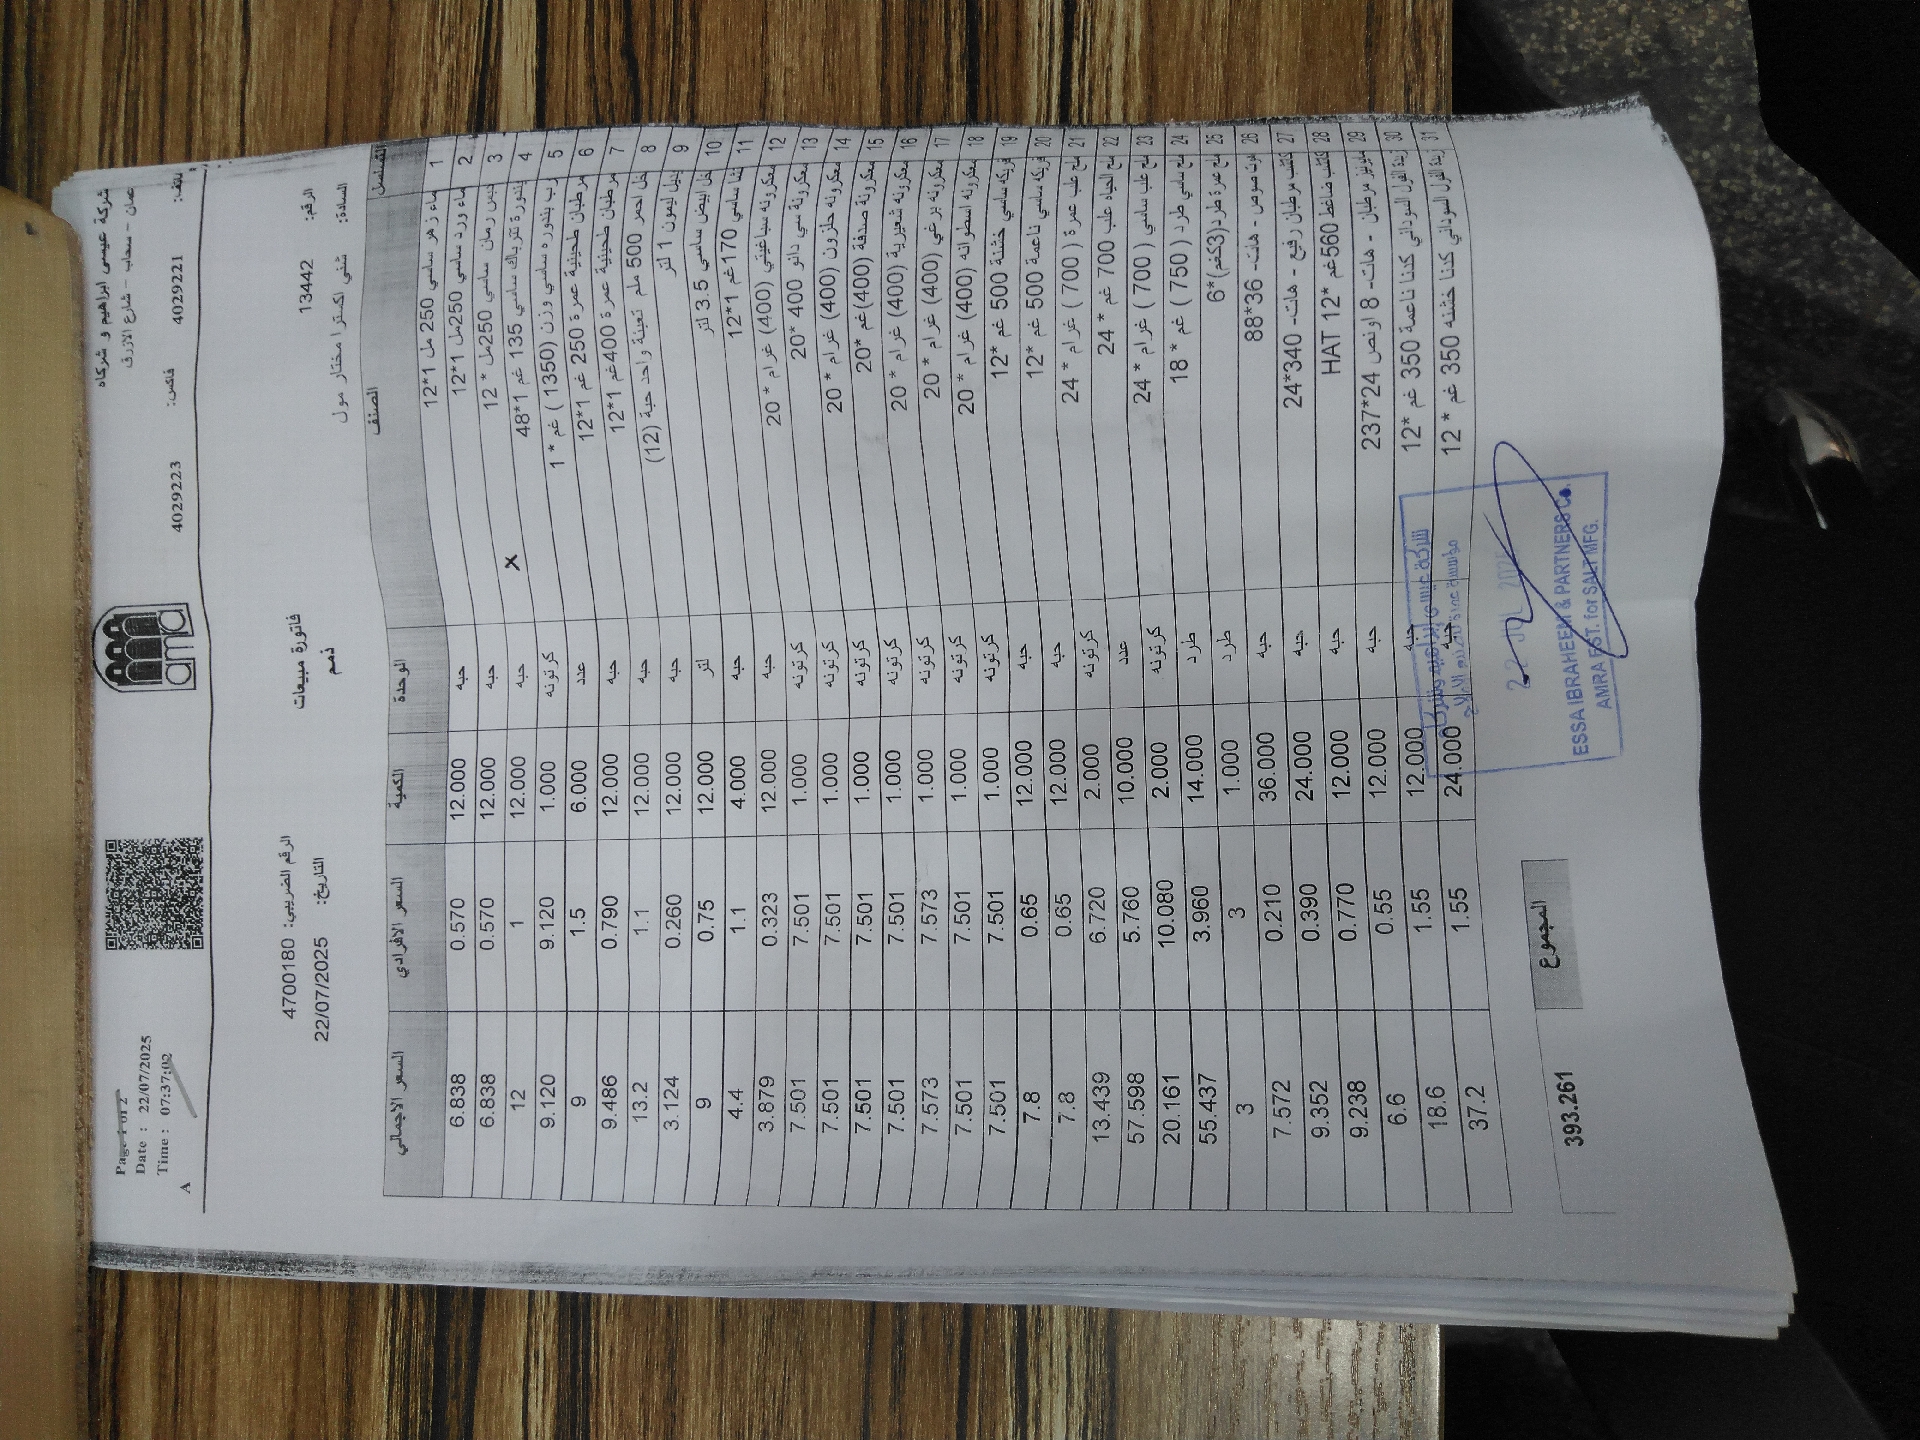 شركة عيسى ابراهيم و شركاه
عمان - سحاب - شارع الازرق
تلفون: 4029221 فاكس: 4029223
ama
Page 1 of 2
Date : 22/07/2025
Time : 07:37:02
A
فاتورة مبيعات
ذمم
الرقم: 13442
الرقم الضريبي: 4700180
السادة: شفي اكسترا مختار مول
التاريخ: 22/07/2025
التسلسل الصنف الوحدة الكمية السعر الافرادي السعر الاجمالي
1 ماء زهر ساسي 250 مل 1*12 حبه 12.000 0.570 6.838
2 ماء ورد ساسي 250مل 1*12 حبه 12.000 0.570 6.838
3 دبس رمان ساسي 250مل * 12 حبه 12.000 1 12
4 بندورة تتراباك ساسي 135 غم 1*48 x كرتونه 1.000 9.120 9.120
5 رب بندوره ساسي وزن (1350 ) غم * 1 عدد 6.000 1.5 9
6 مرطبان طحينية عمرة 250 غم 1*12 حبه 12.000 0.790 9.486
7 مرطبان طحينية عمرة 400غم 1*12 حبه 12.000 1.1 13.2
8 خل احمر 500 ملم تعبئة واحد حبة (12) حبه 12.000 0.260 3.124
9 بديل ليمون 1 لتر لتر 12.000 0.75 9
10 خل ابيض ساسي 3.5 لتر حبه 4.000 1.1 4.4
11 نشا ساسي 170غم 1*12 حبه 12.000 0.323 3.879
12 معكرونه سباغيتي (400) غرام * 20 كرتونه 1.000 7.501 7.501
13 معكرونة سي دانو 400 *20 كرتونه 1.000 7.501 7.501
14 معكرونه حلزون (400) غرام * 20 كرتونه 1.000 7.501 7.501
15 معكرونة صدفة (400)غم *20 كرتونه 1.000 7.501 7.501
16 معكرونه شعيرية (400) غرام * 20 كرتونه 1.000 7.573 7.573
17 معكرونه برغي (400) غرام * 20 كرتونه 1.000 7.501 7.501
18 معكرونه اسطوانه (400) غرام * 20 كرتونه 1.000 7.501 7.501
19 فريكه ساسي خشنة 500 غم *12 حبه 12.000 0.65 7.8
20 فريكه ساسي ناعمة 500 غم *12 حبه 12.000 0.65 7.8
21 ملح علب عمرة ( 700 ) غرام * 24 كرتونه 2.000 6.720 13.439
22 ملح الحياه علب 700 غم * 24 عدد 10.000 5.760 57.598
23 ملح علب ساسي ( 700 ) غرام * 24 كرتونه 2.000 10.080 20.161
24 ملح ساسي طرد ( 750 ) غم * 18 طرد 14.000 3.960 55.437
25 ملح عمرة طرد(3كغم)*6 طرد 1.000 3 3
26 هوت صوص - هات- 36*88 حبه 36.000 0.210 7.572
27 كاتشب مرطبان رفيع - هات- 340*24 حبه 24.000 0.390 9.352
28 كاتشب ضاغط 560غم *12 HAT حبه 12.000 0.770 9.238
29 مايونيز مرطبان - هات- 8 اونص 24*237 حبه 12.000 0.55 6.6
30 زبدة الفول السوداني كدنا ناعمة 350 غم *12 حبه 12.000 1.55 18.6
31 زبدة الفول السوداني كدنا خشنه 350 غم * 12 حبه 24.000 1.55 37.2
شركة عيسى إبراهيم وشركاه
مؤسسة عمرة لصناعة الاملاح
ESSA IBRAHEEM & PARTNERS Co.
AMRA EST. for SALT MFG.
المجموع 393.261